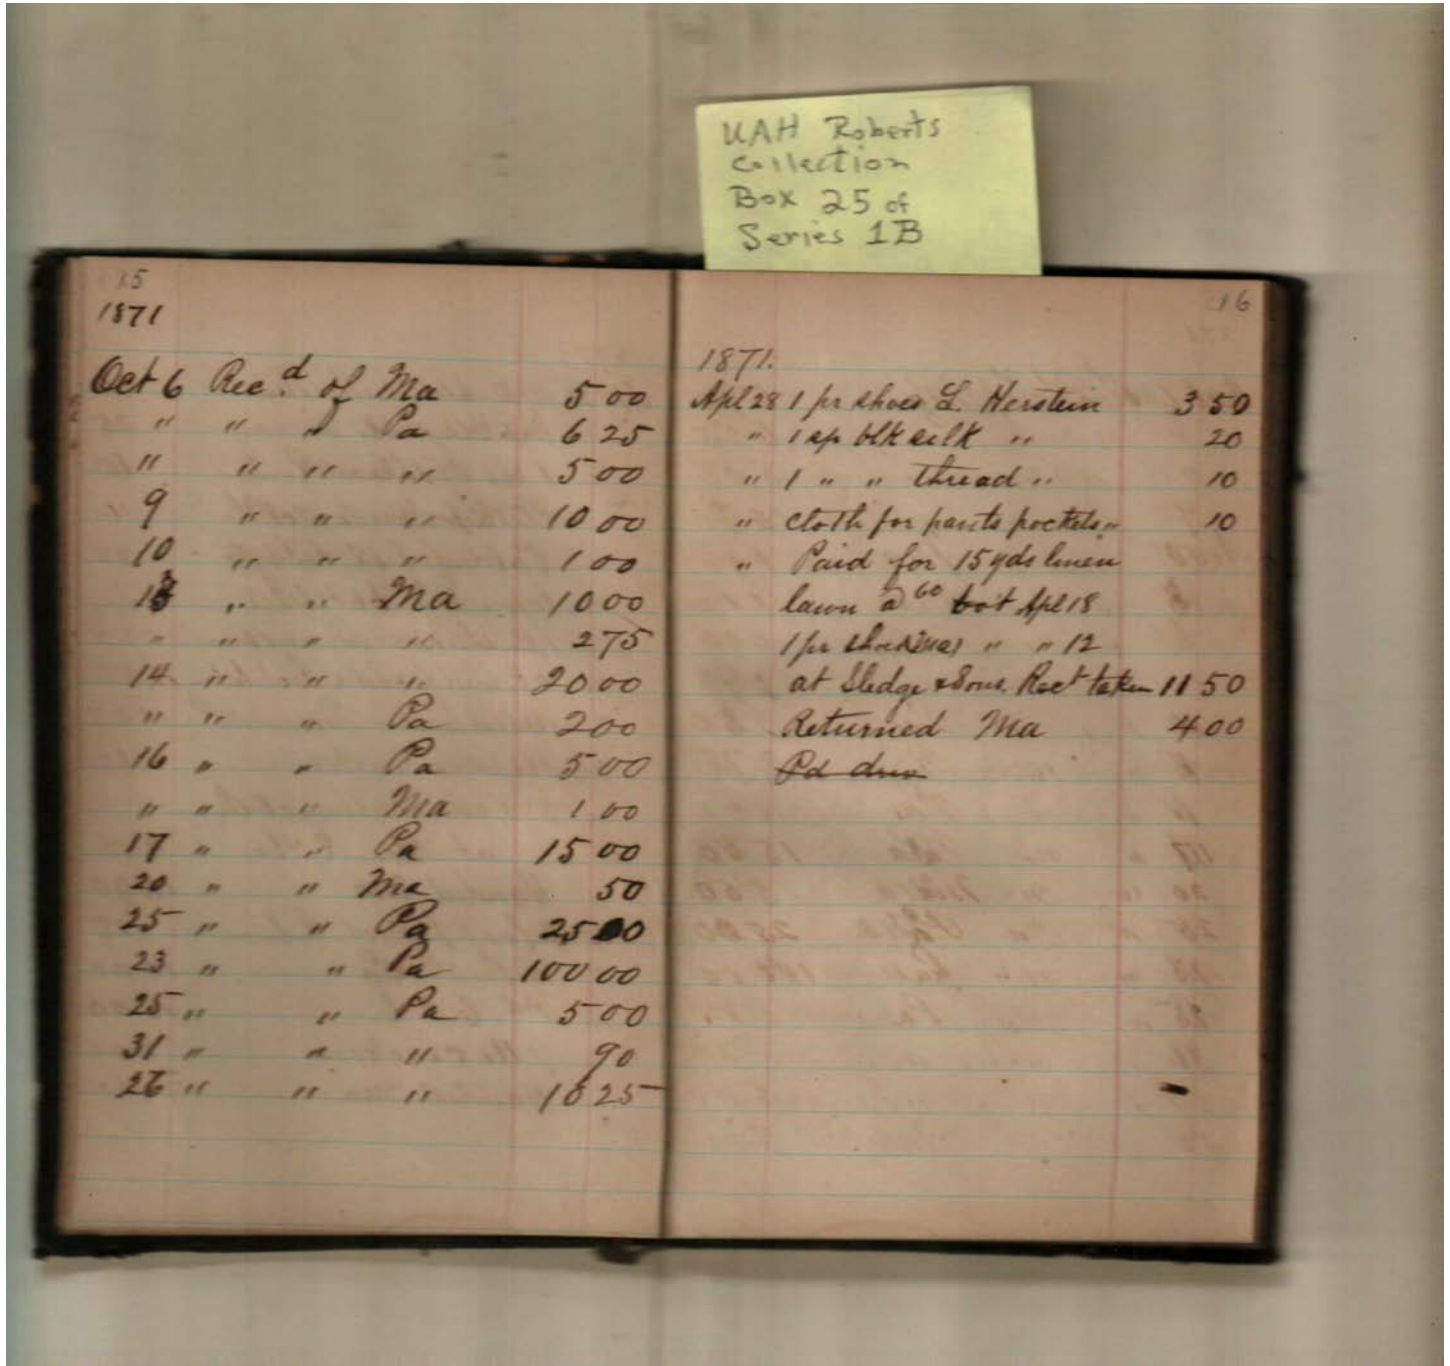 UAH Roberts
Collection
Box 25 of
Series 1B
15
1871
Oct 6 Rec.d of Ma 5 00
" " " Pa 6 25
" " " " 5 00
9 " " " 10 00
10 " " " 1 00
13 " " Ma 10 00
" " " " 2 75
14 " " " 20 00
" " " Pa 2 00
16 " " Pa 5 00
" " " Ma 1 00
17 " " Pa 15 00
20 " " Ma 50
25 " " Pa 25 00
23 " " Pa 100 00
25 " " Pa 5 00
31 " " " 90
26 " " " 10 25
16
1871.
Apl 28 1 pr shoes L. Herstein 3 50
" 1 sp blk silk " 20
" 1 " " thread " 10
" cloth for pants pockets " 10
" Paid for 15 yds linen
lawn @ 60 bot Apl 18
1 pr " " 12
at Sledge & Sons. Rect taken 11 50
Returned Ma 4 00
Pd